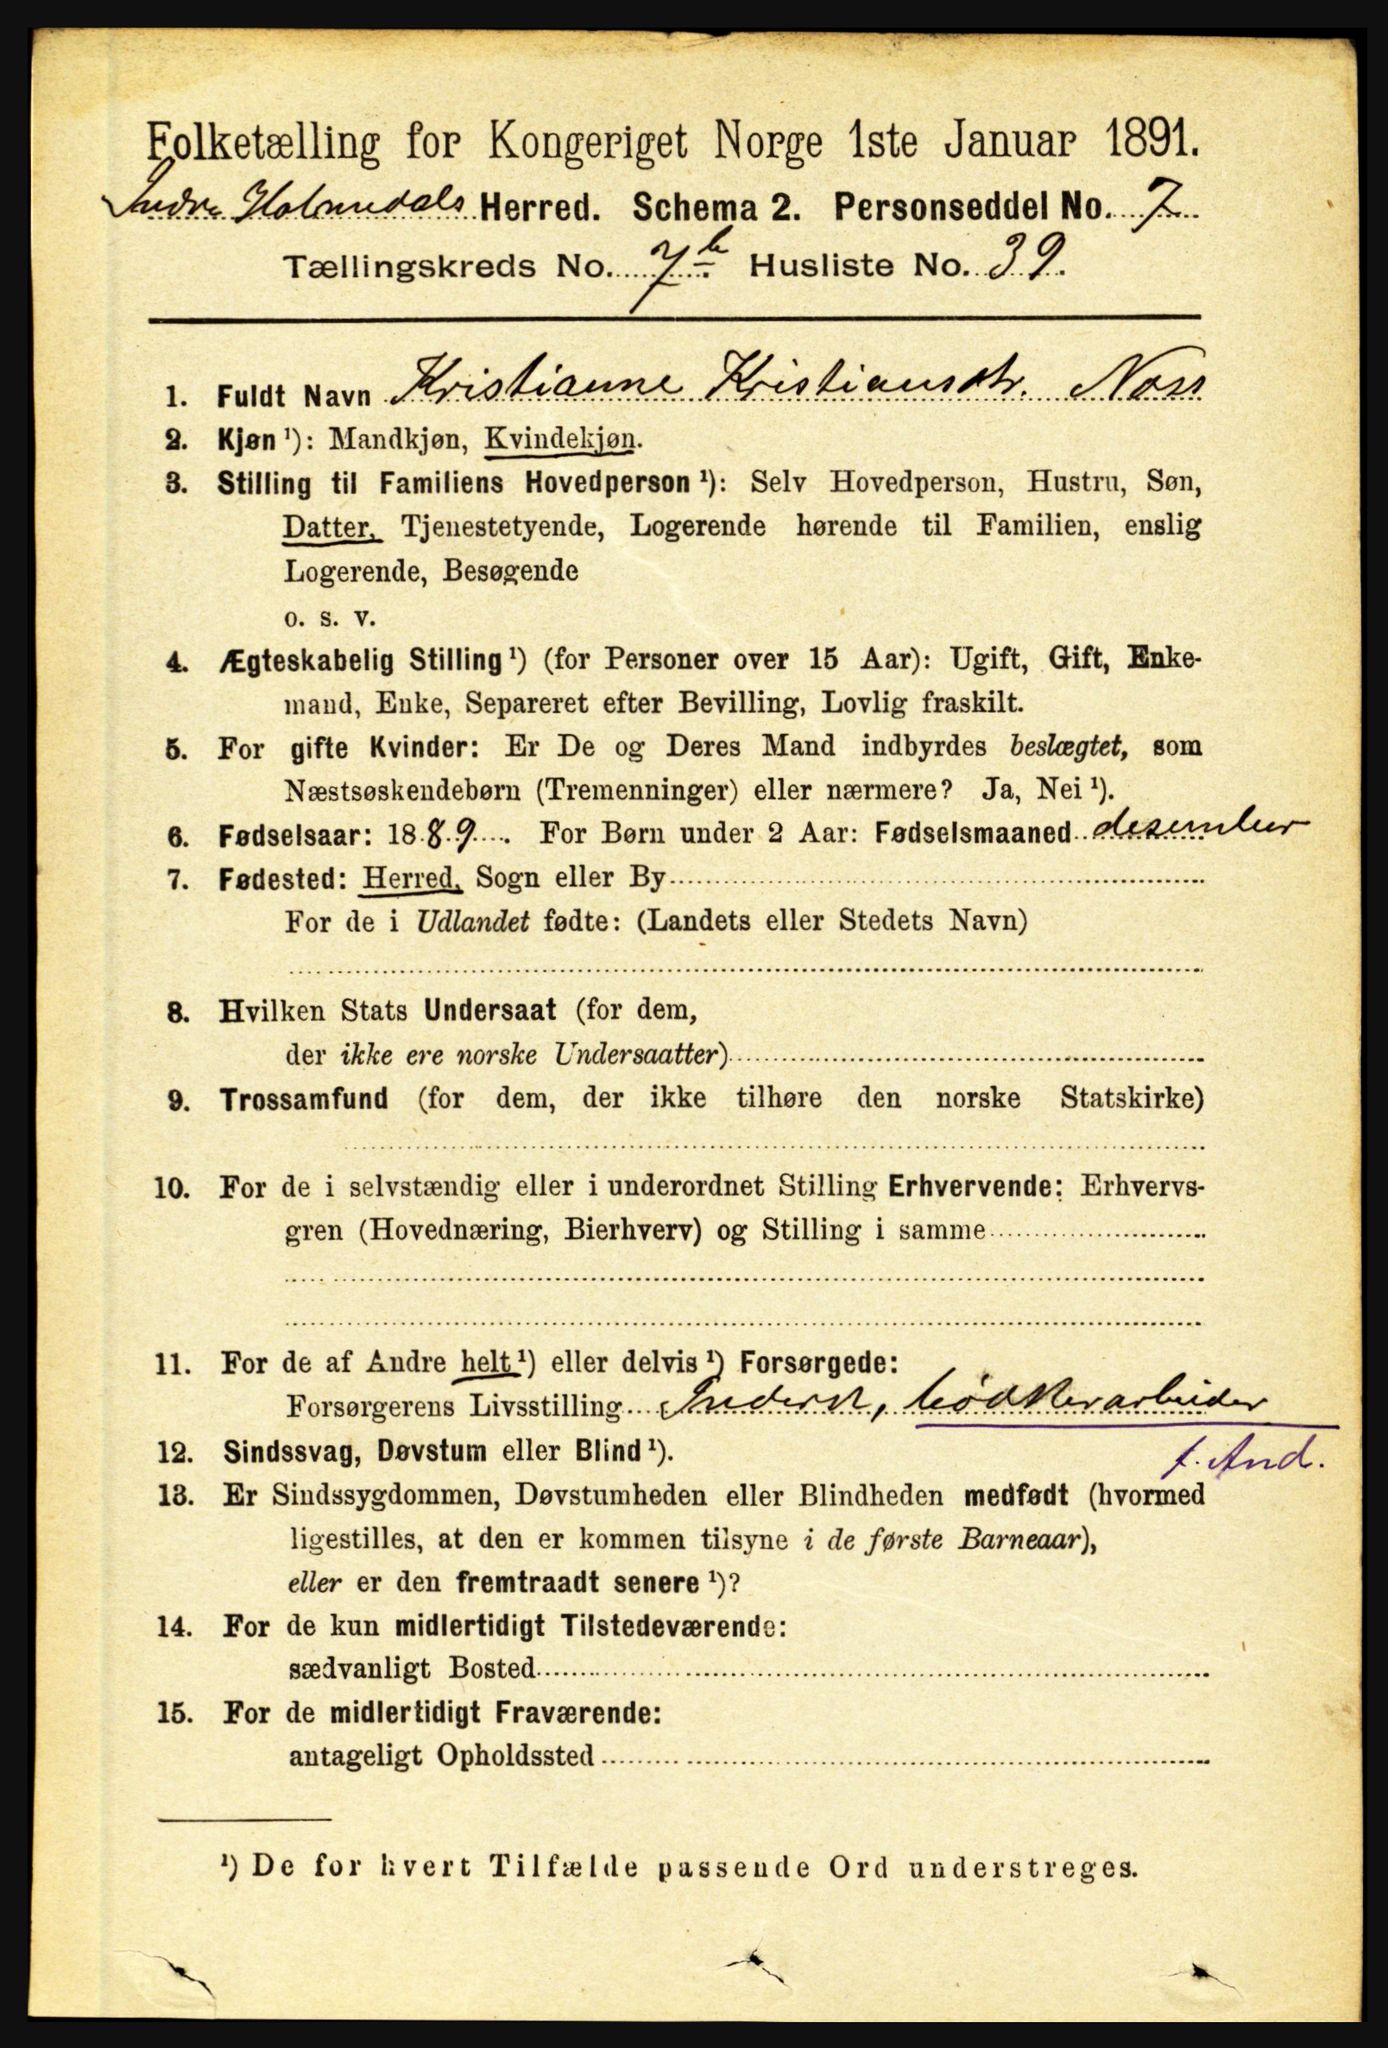 Folketælling for Kongeriget Norge 1ste Januar 1891.
Indre Holmedals Herred. Schema 2. Personseddel No. 7
Tællingskreds No. 7b Husliste No. 39.
1. Fuldt Navn Kristianne Kristiansdtr. Nøss
2. Kjøn ¹): Mandkjøn, Kvindekjøn.
3. Stilling til Familiens Hovedperson ¹): Selv Hovedperson, Hustru, Søn,
Datter, Tjenestetyende, Logerende hørende til Familien, enslig
Logerende, Besøgende
o. s. v.
4. Ægteskabelig Stilling ¹) (for Personer over 15 Aar): Ugift, Gift, Enke-
mand, Enke, Separeret efter Bevilling, Lovlig fraskilt.
5. For gifte Kvinder: Er De og Deres Mand indbyrdes beslægtet, som
Næstsøskendebørn (Tremenninger) eller nærmere? Ja, Nei ¹).
6. Fødselsaar: 1889. For Børn under 2 Aar: Fødselsmaaned desember
7. Fødested: Herred, Sogn eller By
For de i Udlandet fødte: (Landets eller Stedets Navn)
8. Hvilken Stats Undersaat (for dem,
der ikke ere norske Undersaatter)
9. Trossamfund (for dem, der ikke tilhøre den norske Statskirke)
10. For de i selvstændig eller i underordnet Stilling Erhvervende: Erhvervs-
gren (Hovednæring, Bierhverv) og Stilling i samme
11. For de af Andre helt ¹) eller delvis ¹) Forsørgede:
Forsørgerens Livsstilling Inderst, bødkerarbeider
f. And.
12. Sindssvag, Døvstum eller Blind ¹).
13. Er Sindssygdommen, Døvstumheden eller Blindheden medfødt (hvormed
ligestilles, at den er kommen tilsyne i de første Barneaar),
eller er den fremtraadt senere ¹)?
14. For de kun midlertidigt Tilstedeværende:
sædvanligt Bosted
15. For de midlertidigt Fraværende:
antageligt Opholdssted
¹) De for hvert Tilfælde passende Ord understreges.